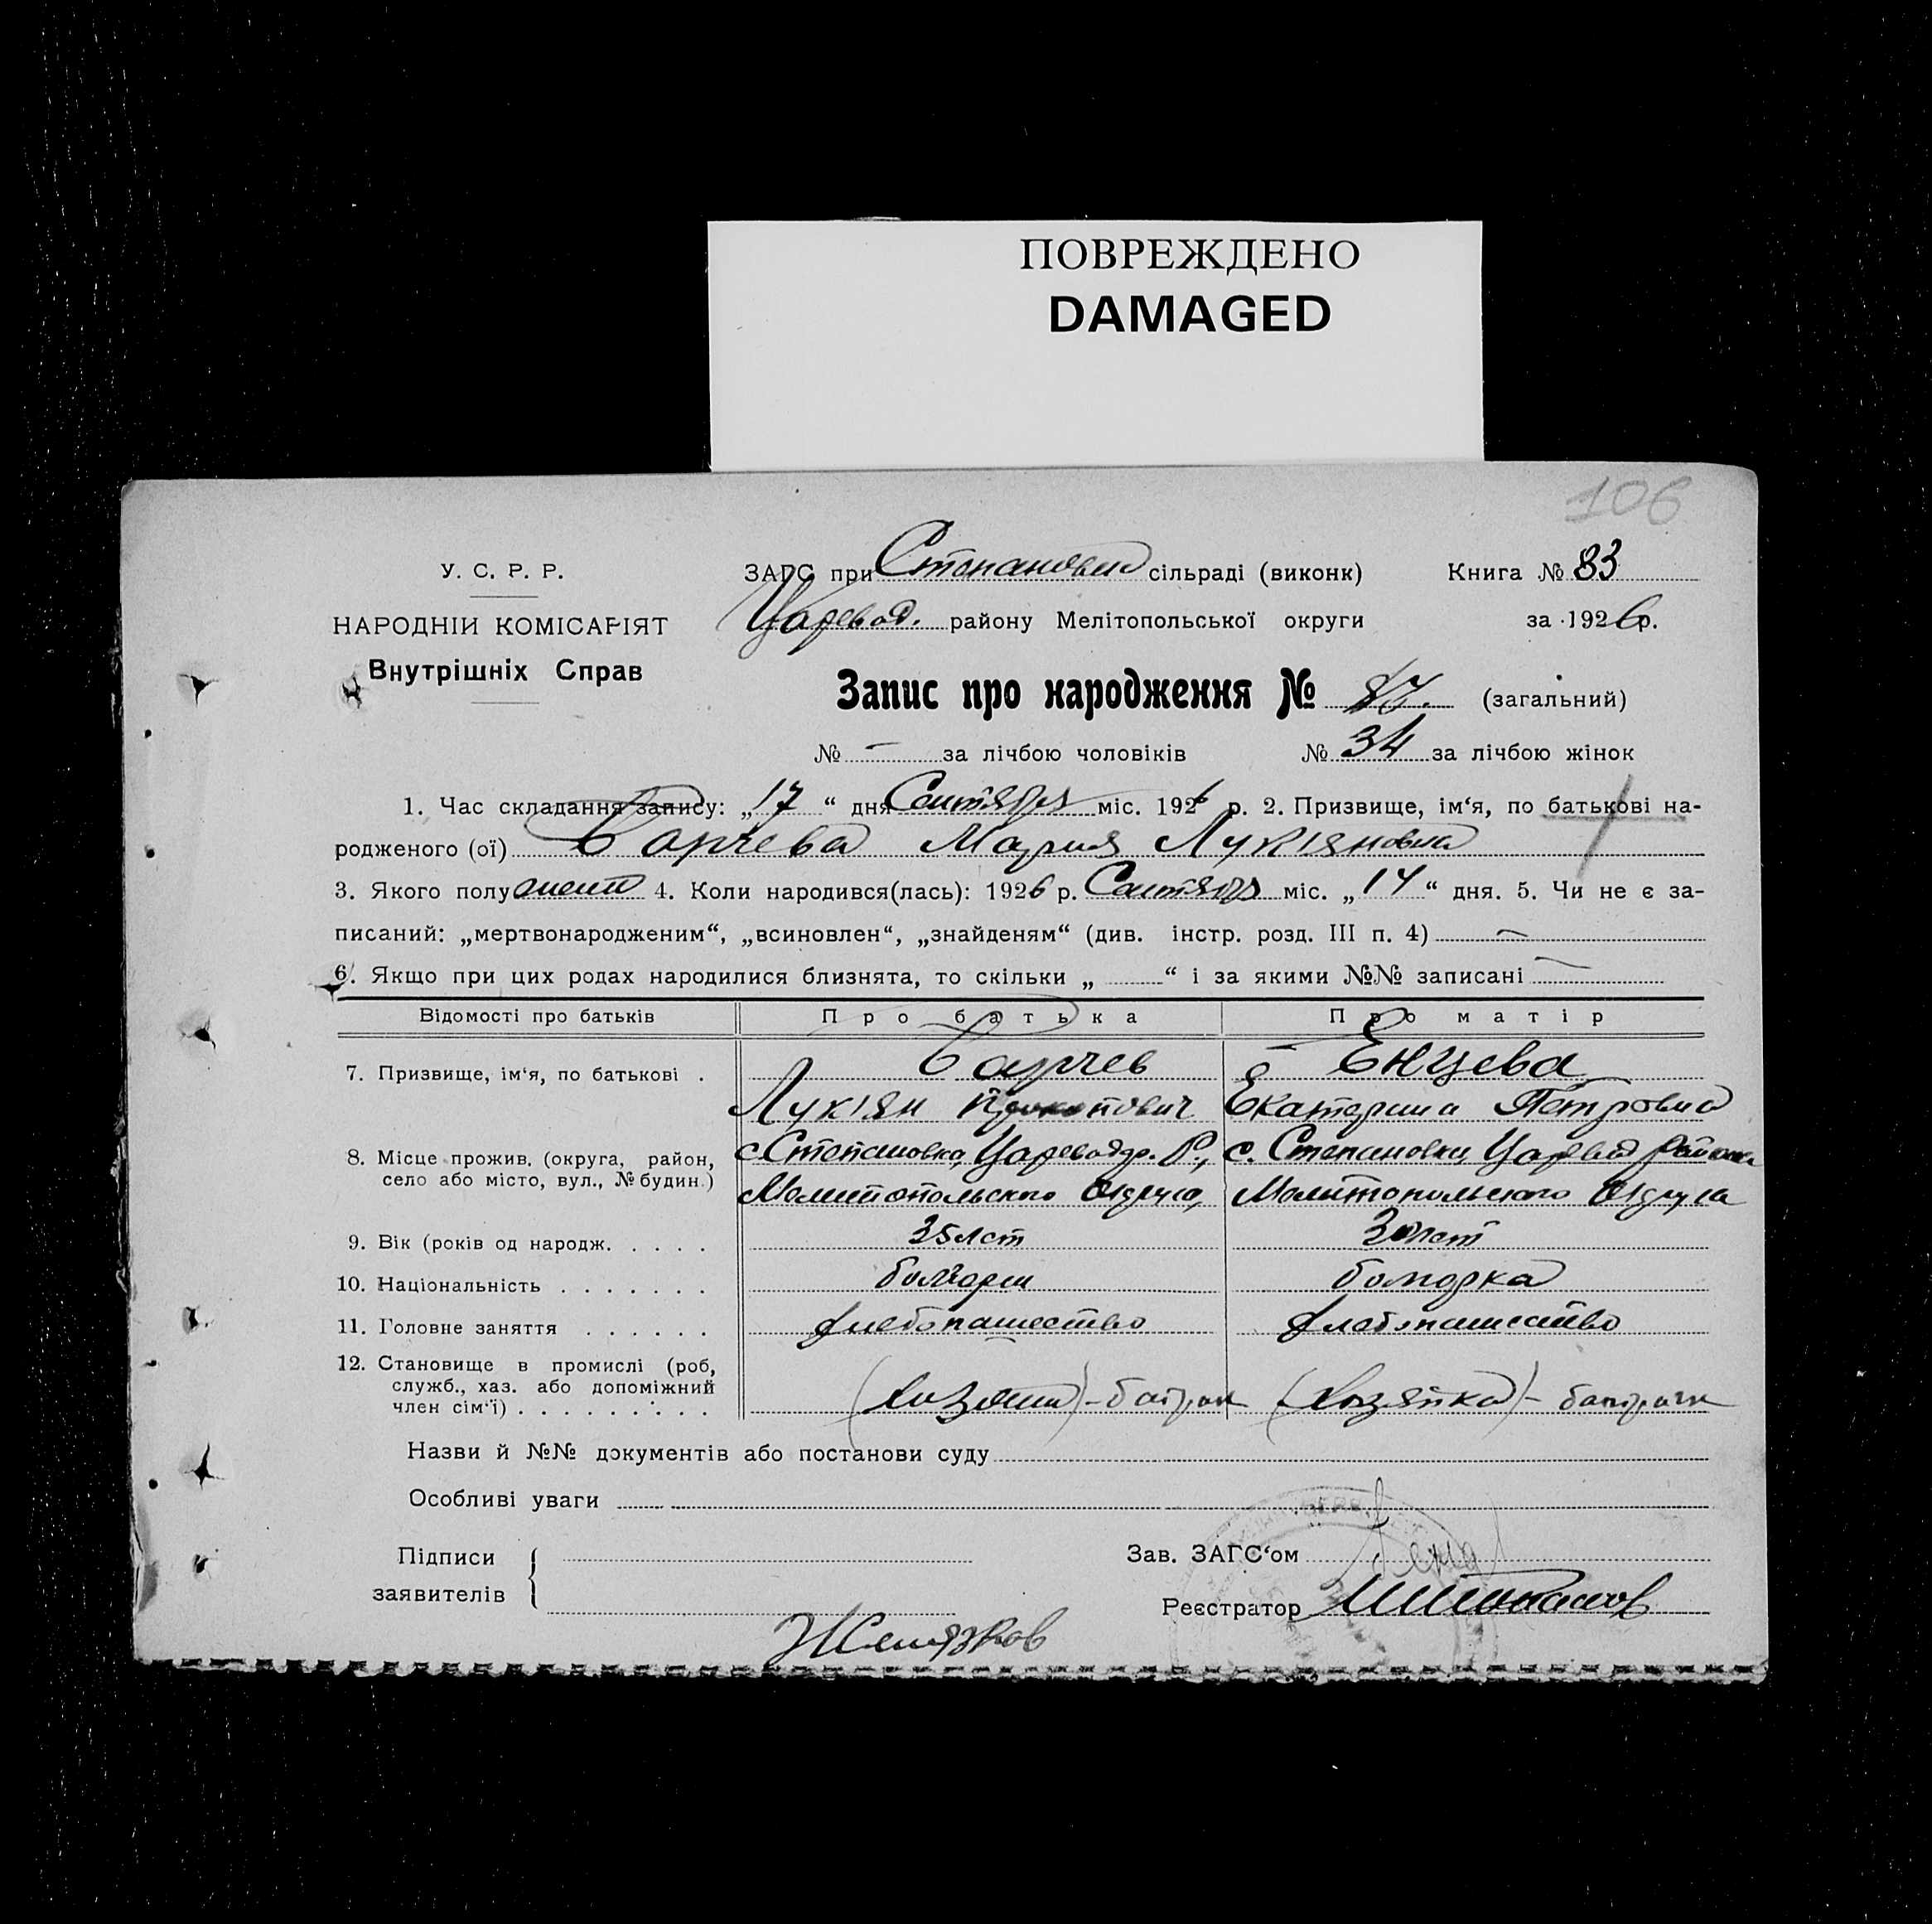 ПОВРЕЖДЕНО
DAMAGED
106
У. С. Р. Р.
НАРОДНІЙ КОМІСАРІЯТ
Внутрішніх Справ
ЗАГС при Степановки сільраді (виконк) Книга № 83
Царевод. району Мелітопольської округи за 1926 р.
Запис про народження № 87. (загальний)
№ — за лічбою чоловіків № 34 за лічбою жінок
1. Час складання запису: „17“ дня Сентября міс. 1926 р. 2. Призвище, ім‘я, по батькові на-
родженого (ої) Мария Лукіяновна
3. Якого полу женск 4. Коли народився(лась): 1926 р. Сентября міс. „14“ дня. 5. Чи не є за-
писаний: „мертвонародженим“, „всиновлен“, „знайденям“ (див. інстр. розд. III п. 4) —
6. Якщо при цих родах народилися близнята, то скільки „ “ і за якими №№ записані —
Відомості про батьків Про батька Про матір
7. Призвище, ім‘я, по батькові . Енцева
Лукіян Прокопович Екатерина Петровна
8. Місце прожив. (округа, район, село або місто, вул., № будин.) с. Степановка, Цареводр. Р., с. Степановки Царевод района
Мелитопольского Округа, Мелитопольского Округа
9. Вік (років од народж. . . . . 35 лет 30 лет
10. Національність . . . . . . . болгарин болгарка
11. Головне заняття . . . . . . хлебопашество хлебопашество
12. Становище в промислі (роб, служб., хаз. або допоміжний член сім‘ї) . . . . . . . . . (хозяин) - батрак (хозяйка) - батрачк
Назви й №№ документів або постанови суду
Особливі уваги
Підписи заявителів
Зав. ЗАГС‘ом
Реєстратор